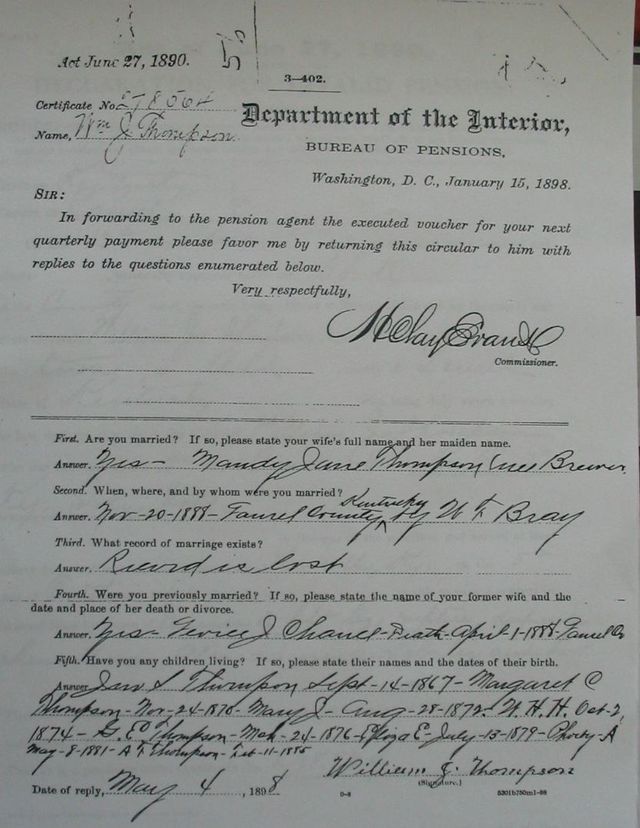 Act June 27, 1890.
3—402.
Certificate No.
Department of the Interior,
Name, Wm J Thompson
BUREAU OF PENSIONS,
Washington, D. C., January 15, 1898.
SIR:
In forwarding to the pension agent the executed voucher for your next
quarterly payment please favor me by returning this circular to him with
replies to the questions enumerated below.
Very respectfully,
H Clay Evans
Commissioner.
First. Are you married? If so, please state your wife's full name and her maiden name.
Answer. Yes- Mandy Jane Thompson (nee Brewer
Second. When, where, and by whom were you married?
Answer. Nov-20-1888- Laurel County Kentucky by W F Bray
Third. What record of marriage exists?
Answer. Record is lost
Fourth. Were you previously married? If so, please state the name of your former wife and the
date and place of her death or divorce.
Answer. Yes- J Chance-Death-April-1-1888-Laurel Co
Fifth. Have you any children living? If so, please state their names and the dates of their birth.
Answer. S. Thompson Sept-14-1867-Margaret C
Thompson-Nov-24-1870-Mary J- Aug-28-1872- W. H. H. Oct-2,
1874- Thompson-Mch-24-1876- E-July-13-1879- A
May-8-1881-A F Thompson-Feb-11-1885
William J. Thompson
(Signature.)
Date of reply, May 4, 1898
0-8
5301b750m1-98